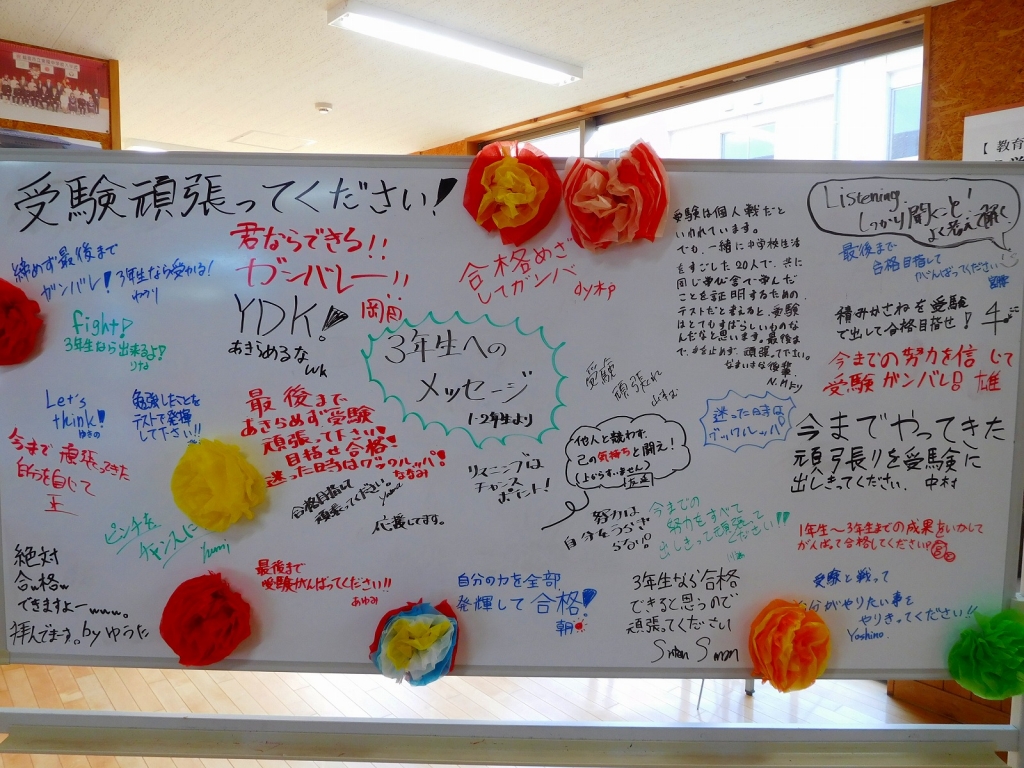 受験頑張ってください!
締めず最後まで
ガンバレ!3年生なら受かる!
ゆうり
fight!
3年生なら出来るよ!
りな
Let's
think!
ゆきの
勉強したことを
テストで発揮
して下さい!!
今まで頑張ってきた
自分を信じて
ピンチを
チャンスに
Yumi
絶対
合格w
できますよーwww。
拝んでます。byゆうた
君ならできる!!
ガンバレー!!
岡田
YDK!
あきらめるな
最後まで
あきらめず受験
頑張って下さい!
目指せ合格!
迷った日当はグックルッパ!
ななみ
合格目指して
頑張ってください。
応援してます。
最後まで
受験がんばってください!!
あゆみ
合格めざ
してガンバ
3年生への
メッセージ
1・2年生より
リスニングは
チャンス
ポイント!
受験
頑張れ
他人と競わず、
己の気持ちと闘え!
(上からすいません)
努力は
自分をうらぎ
らない!
今までの
努力をすべて
出しきって頑張って
ください!!
自分の力を全部
発揮して合格!
朝
3年生なら合格
できると思うので
頑張ってください
受験は個人戦だと
いわれています。
でも、一緒に中学校生活
をすごした20人で、共に
同じ学び舎で学んだ
ことを証明するための
テストだと考えると、受験
はとてもすばらしいものな
んだなと思います。最後ま
で、気を止めず、頑張って下さい。
なまいきな後輩
N.M.F.y
迷った日キは
グックルッパ!
Listening
しっかり聞くこと!
よく考えて解く
最後まで
合格目指して
がんばってください
積みかさねを受験
で出して合格目指せ!
今までの努力を信じて
受験ガンバレ!! 雄
今までやってきた
頑張りを受験に
出しきってください. 中村
1年生〜3年生までの成果をいかして
がんばって合格してください!
受験と戦って
自分がやりたい事を
やりきってください!!
Yoshino.
【教育